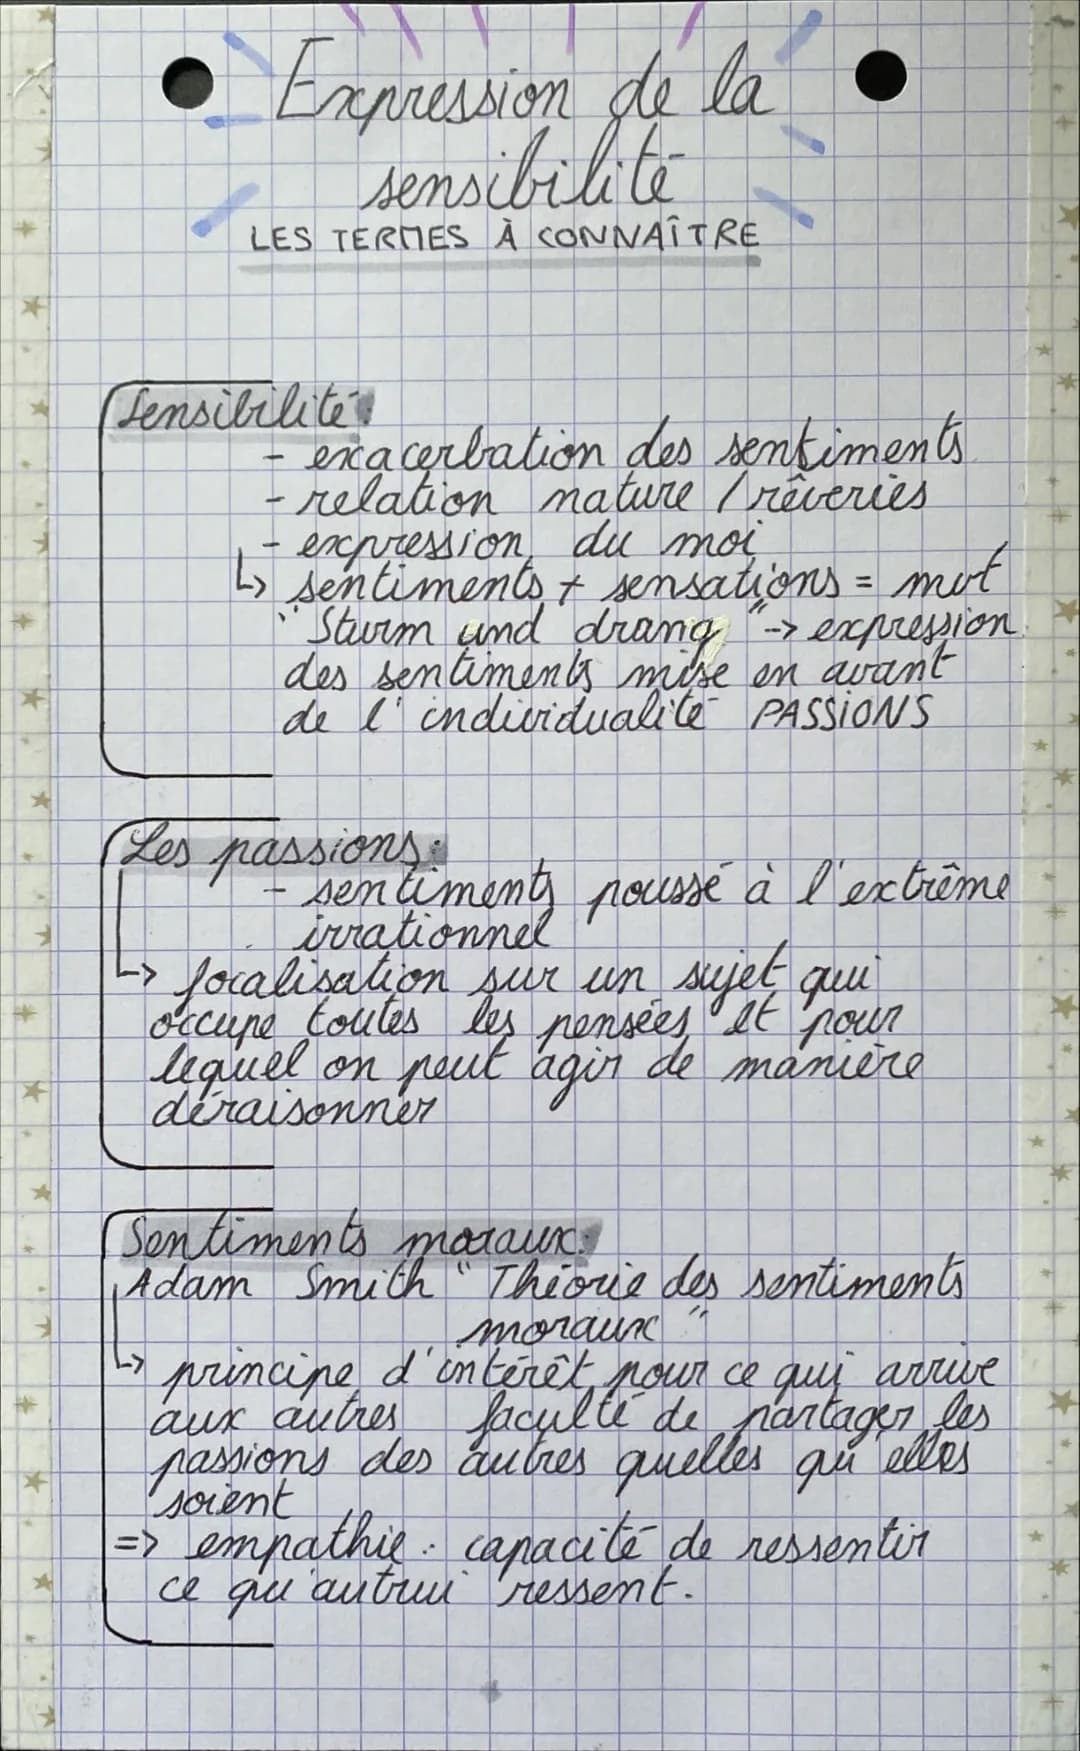 Expression de la
sensibilité
LES TERMES À CONNAÎTRE
Sensibilité:
- exacerbation des sentiments
- relation nature / rêveries
- expression du moi
↳ sentiments + sensations = mvt
"Sturm und drang" -> expression
des sentiments mise en avant
de l'individualité PASSIONS
Les passions:
- sentiments poussé à l'extrême
irrationnel
↳ focalisation sur un sujet qui
occupe toutes les pensées et pour
lequel on peut agir de manière
déraisonner
Sentiments moraux:
Adam Smith "Théorie des sentiments
moraux"
↳ principe d'intérêt pour ce qui arrive
aux autres faculté de partager les
passions des autres quelles qu'elles
soient
=> empathie: capacité de ressentir
ce qu'autrui ressent.